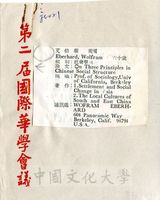 第二屆國際華學會議
Eberhard, Wolfram
On Three Principles in
Chinese Social Structure
Prof. of Sociology, Univ
of California, Berkeley
1. Settlement and Social
Change in Asia
2. The Local Cultures of
South and East China
WOLFRAM EBERH-
ARD
604 Panoramic Way
Berkeley, Calif. 94704
U.S.A.
中國文化大學